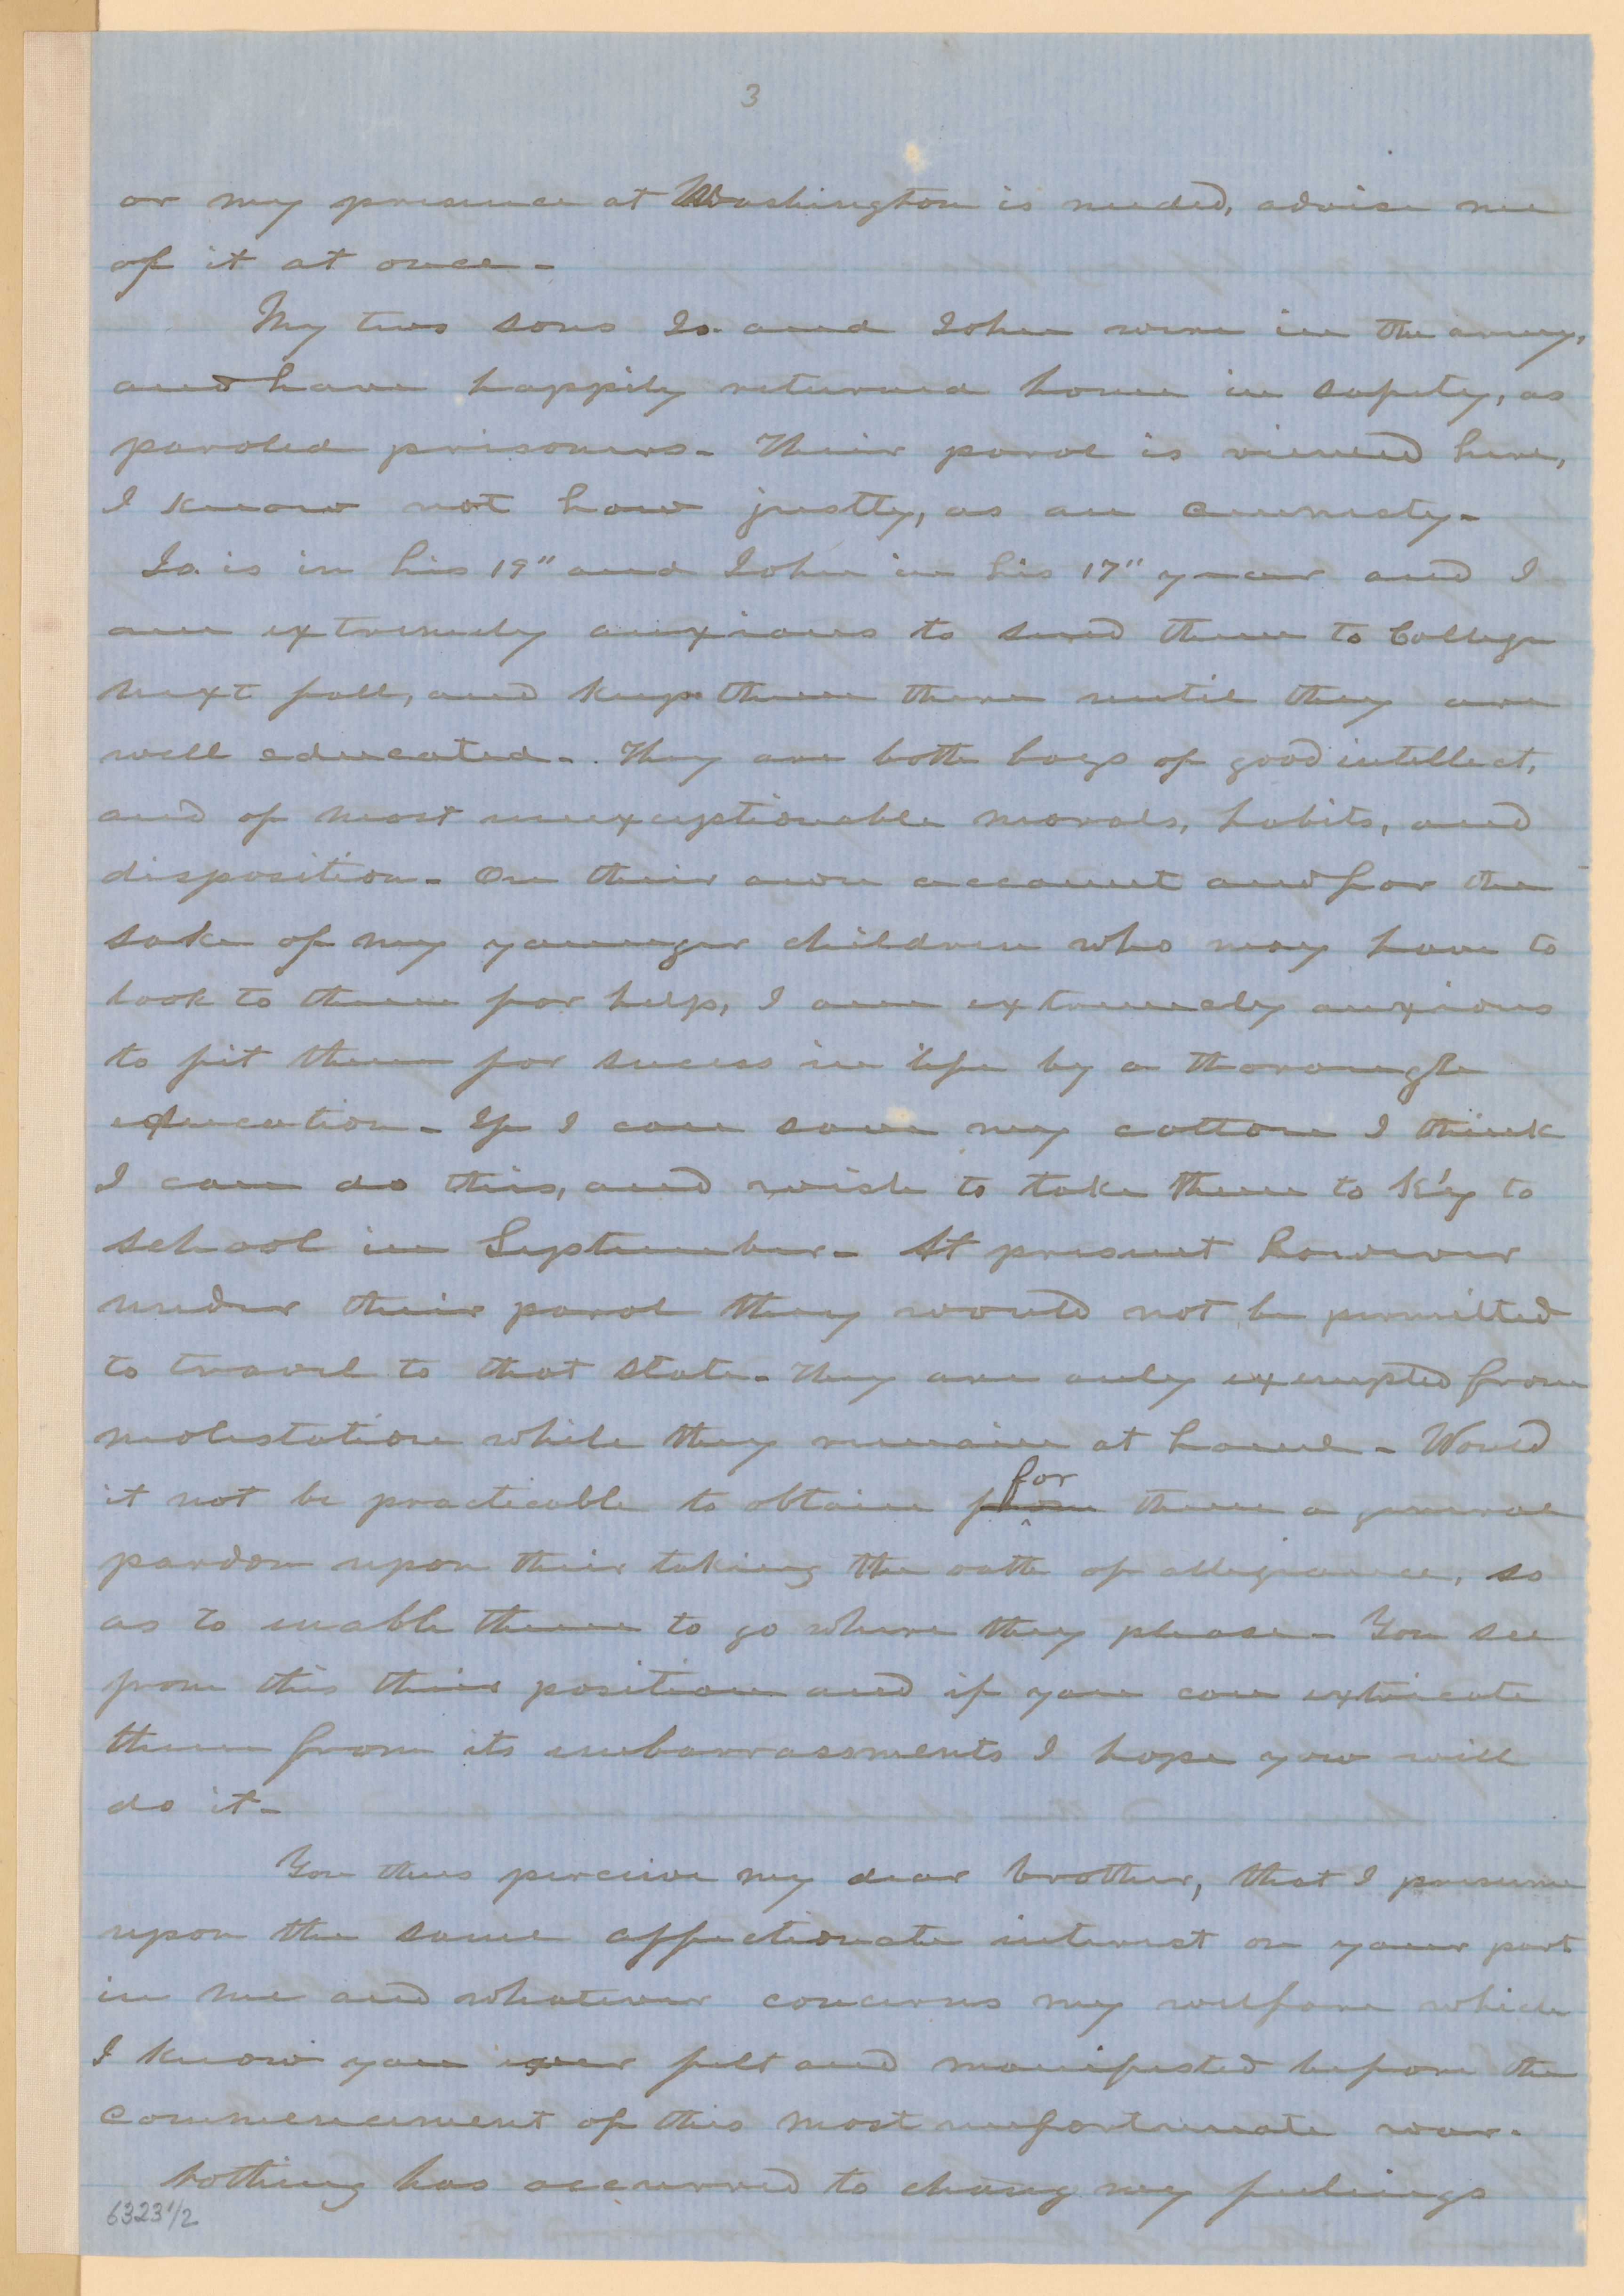 3
or my presence at Washington is needed, advise me
of it at once -
My two sons Is. and John were in the army,
and have happily returned home in safety, as
paroled prisoners - Their parol is viewed here,
I know not how justly, as an amnesty -
Is. is in his 19" and John in his 17" year and I
am extremely anxious to send them to College
next fall, and keep them there until they are
well educated - They are both boys of good intellect,
and of most unexceptionable morals, habits, and
disposition - On their own account and for the
sake of my younger children who may have to
look to them for help, I am extremely anxious
to fit them for success in life by a thorough
education - If I can save my cotton I think
I can do this, and wish to take them to K'y to
school in September - At present however
under their parol they would not be permitted
to travel to that state - They are only exempted from
molestation while they remain at home - Would
it not be practicable to obtain from for them a general
pardon upon their taking the oath of allegiance, so
as to enable them to go where they please - You see
from this their position and if you can extricate
them from its embarrassments I hope you will
do it -
You thus perceive my dear brother, that I presume
upon the same affectionate interest on your part
in me and whatever concerns my welfare which
I know you ever felt and manifested before the
commencement of this most unfortunate war -
Nothing has occurred to chang my feelings
6323 1/2